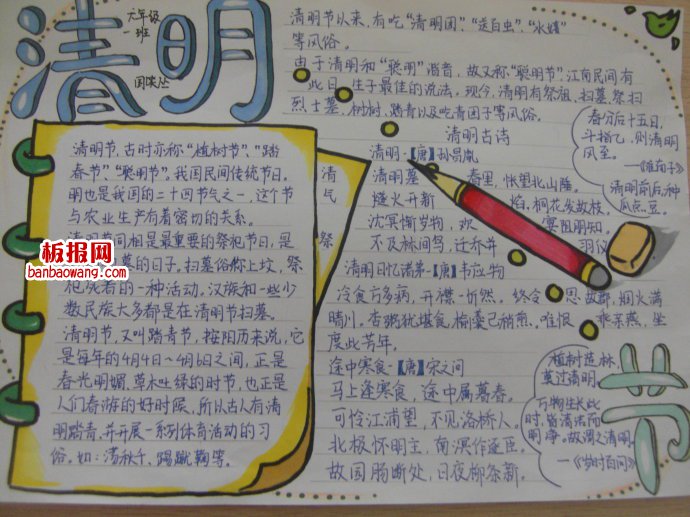 清明
六年级
一班
清明节,古时亦称“植树节”、“踏
春节”“聪明节”,我国民间传统节日。
明也是我国的二十四节气之一,这个节
与农业生产有着密切的关系。
清明节同相是最重要的祭祀节日,是
墓的日子。扫墓俗称上坟,祭
祀死者的一种活动。汉族和一些少
数民族大多都是在清明节扫墓。
清明节,又叫踏青节,按阳历来说,它
是每年的4月4日~4月6日之间,正是
春光明媚,草木吐绿的时节,也正是
人们春游的好时候,所以古人有清
明踏青,并开展一系列体育活动的习
俗。如:荡秋千、踢蹴鞠等。
板报网
banbaowang.com
清
民
祭
清明节以来,有吃“清明团”、“送百虫”、
等风俗。
由于清明和“聪明”谐音,故又称“聪明节”,江南民间有
此日生子最佳的说法。现今,清明有祭祖、扫墓、祭扫
烈士墓、植树、踏青以及吃青团子等风俗。
清明古诗
清明·【唐】孙昌胤
清明暮春里,怅望北山陲。
燧火开新焰,桐花发故枝。
沈冥惭岁物,欢宴阻朋知。
不及林间鸟,迁乔并羽仪
清明日忆诸弟·【唐】韦应物
冷食方多病,开襟一忻然。终令思故郡,烟火满
晴川。杏粥犹堪食,榆羹已稍煎。唯恨乖亲燕,坐
度此芳年。
途中寒食·【唐】宋之问
马上逢寒食,途中属暮春。
可怜江浦望,不见洛桥人。
北极怀明主,南溟作逐臣。
故园肠断处,日夜柳条新。
春分后十五日,
斗指乙,则清明
风至。
—《淮南子》
清明前后,种
瓜点豆。
植树造林,
莫过清明。
万物生长此
时,皆清洁而
明净。故谓之清明。
—《岁时百问》
节